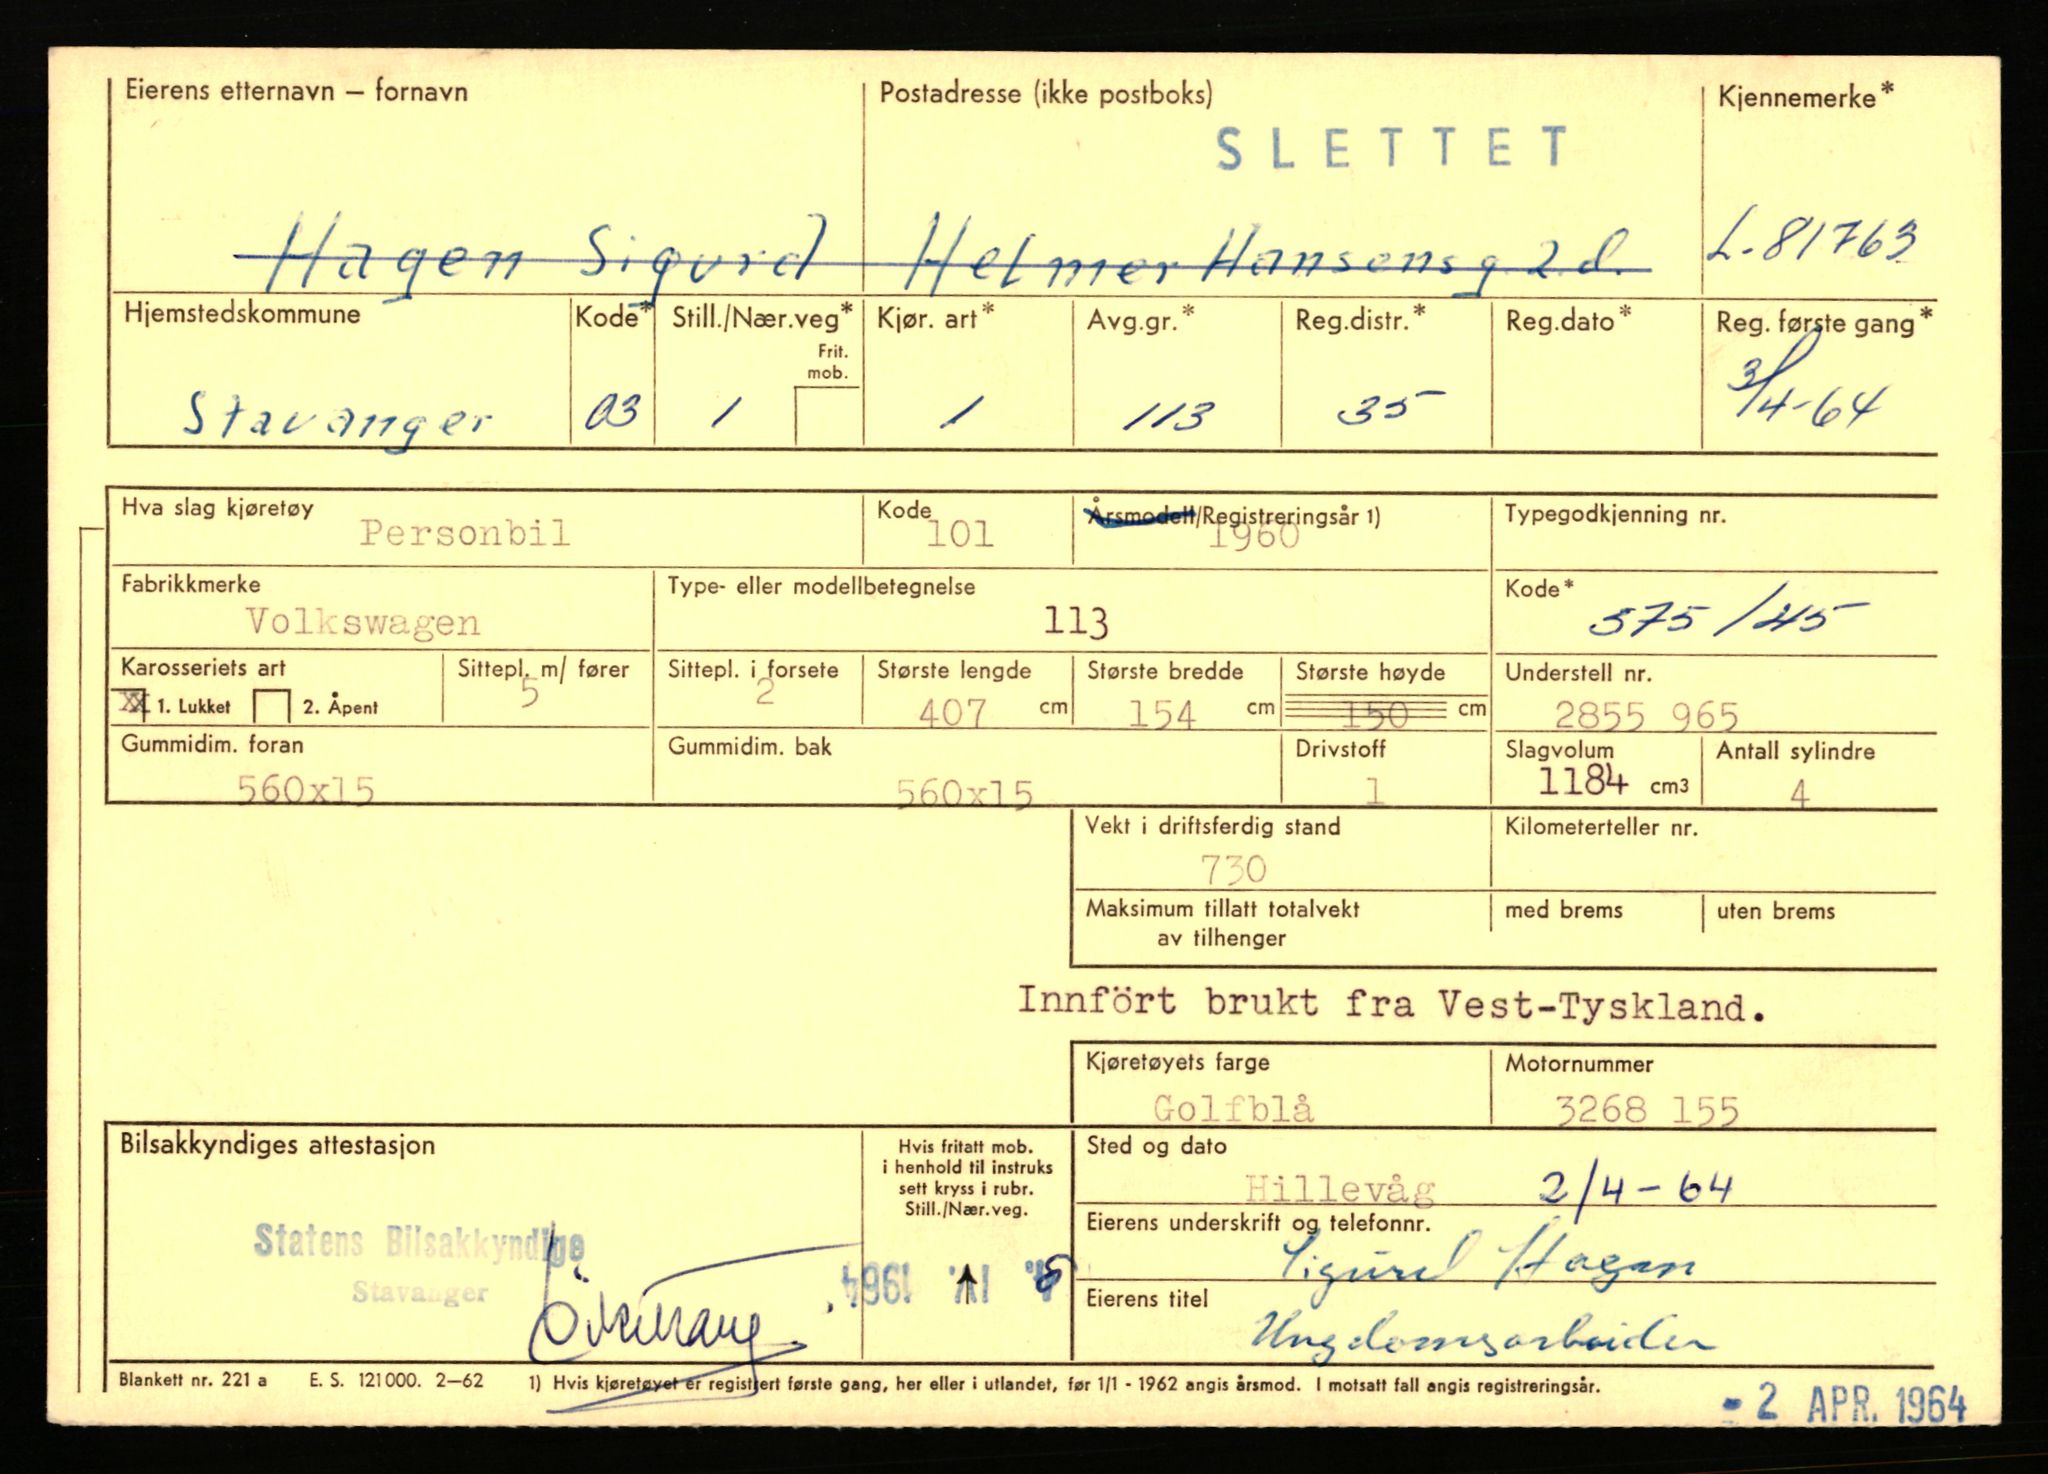 Eierens etternavn – fornavn
Postadresse (ikke postboks)
Kjennemerke*
SLETTET
Hagen Sigurd
Helmer Hansensg. 2.d.
L-81763
Hjemstedskommune
Kode*
Still./Nær.veg*
Frit.
mob.
Kjør. art*
Avg.gr.*
Reg.distr.*
Reg.dato*
Reg. første gang*
Stavanger
03
1
1
113
35
3/4-64
Hva slag kjøretøy
Personbil
Kode
101
Årsmodell/Registreringsår 1)
1960
Typegodkjenning nr.
Fabrikkmerke
Volkswagen
Type- eller modellbetegnelse
113
Kode*
575/45
Karosseriets art
XX 1. Lukket
2. Åpent
Sittepl. m/ fører
5
Sittepl. i forsete
2
Største lengde
407 cm
Største bredde
154 cm
Største høyde
150 cm
Understell nr.
2855 965
Gummidim. foran
560x15
Gummidim. bak
560x15
Drivstoff
1
Slagvolum
1184 cm3
Antall sylindre
4
Vekt i driftsferdig stand
730
Kilometerteller nr.
Maksimum tillatt totalvekt
av tilhenger
med brems
uten brems
Innfört brukt fra Vest-Tyskland.
Kjøretøyets farge
Golfblå
Motornummer
3268 155
Bilsakkyndiges attestasjon
Statens Bilsakkyndige
Stavanger
Hvis fritatt mob.
i henhold til instruks
sett kryss i rubr.
Still./Nær.veg.
IV. 1964
Sted og dato
Hillevåg 2/4-64
Eierens underskrift og telefonnr.
Sigurd Hagen
Eierens titel
Ungdomsarbeider
Blankett nr. 221 a E. S. 121000. 2–62
1) Hvis kjøretøyet er registrert første gang, her eller i utlandet, før 1/1 - 1962 angis årsmod. I motsatt fall angis registreringsår.
- 2 APR. 1964